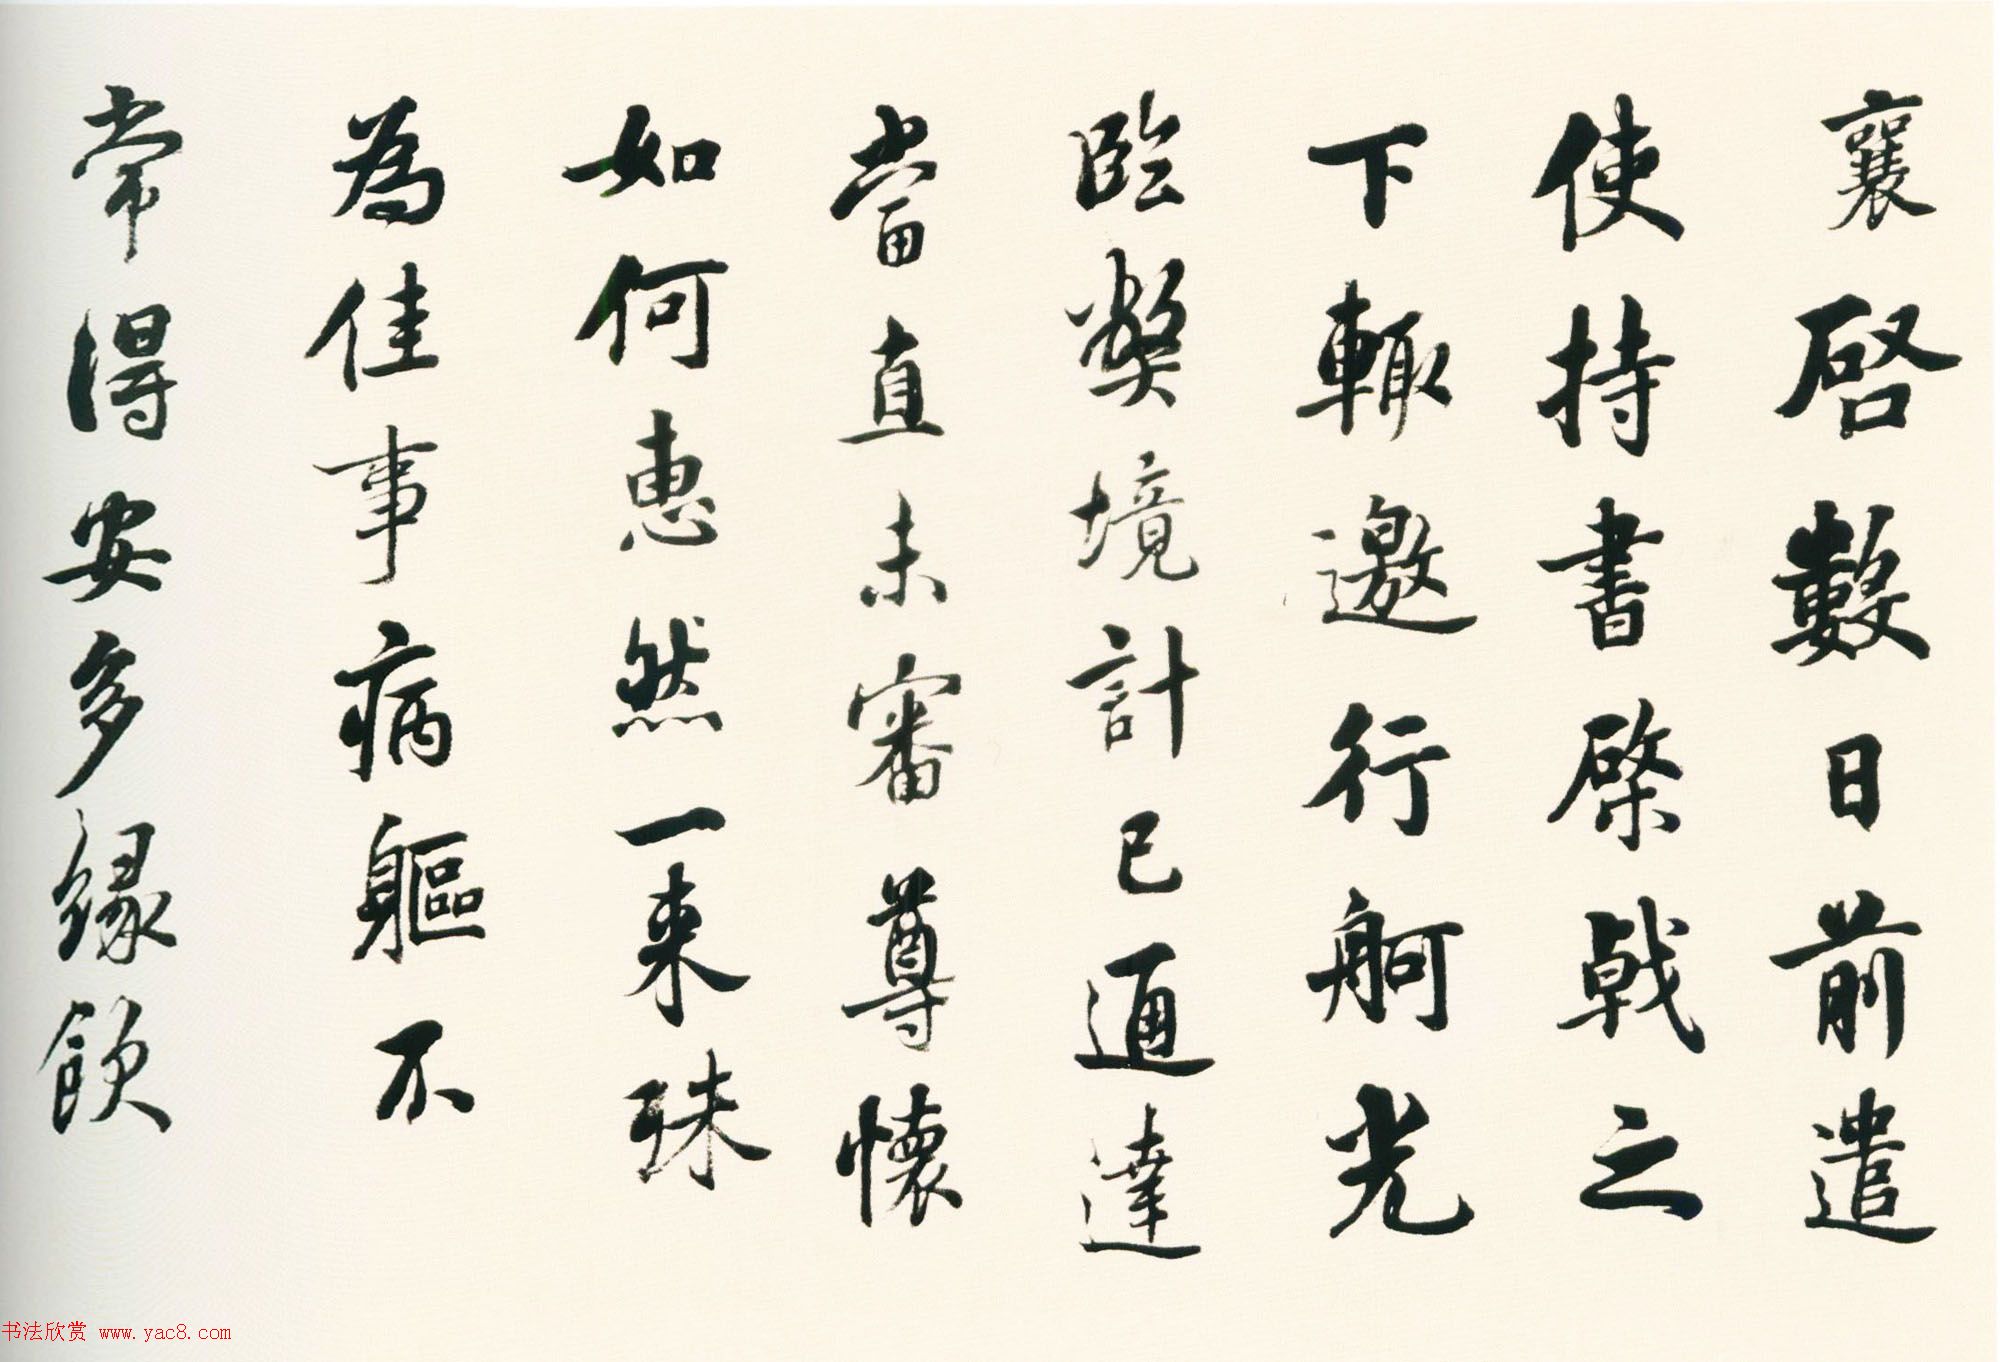 襄啓數日前遣
使持書棨戟之
下輙邀行舸光
臨弊境計已通達
當直未審尊懷
如何惠然一来殊
為佳事病軀不
常得安多緣飲
书法欣赏 www.yac8.com